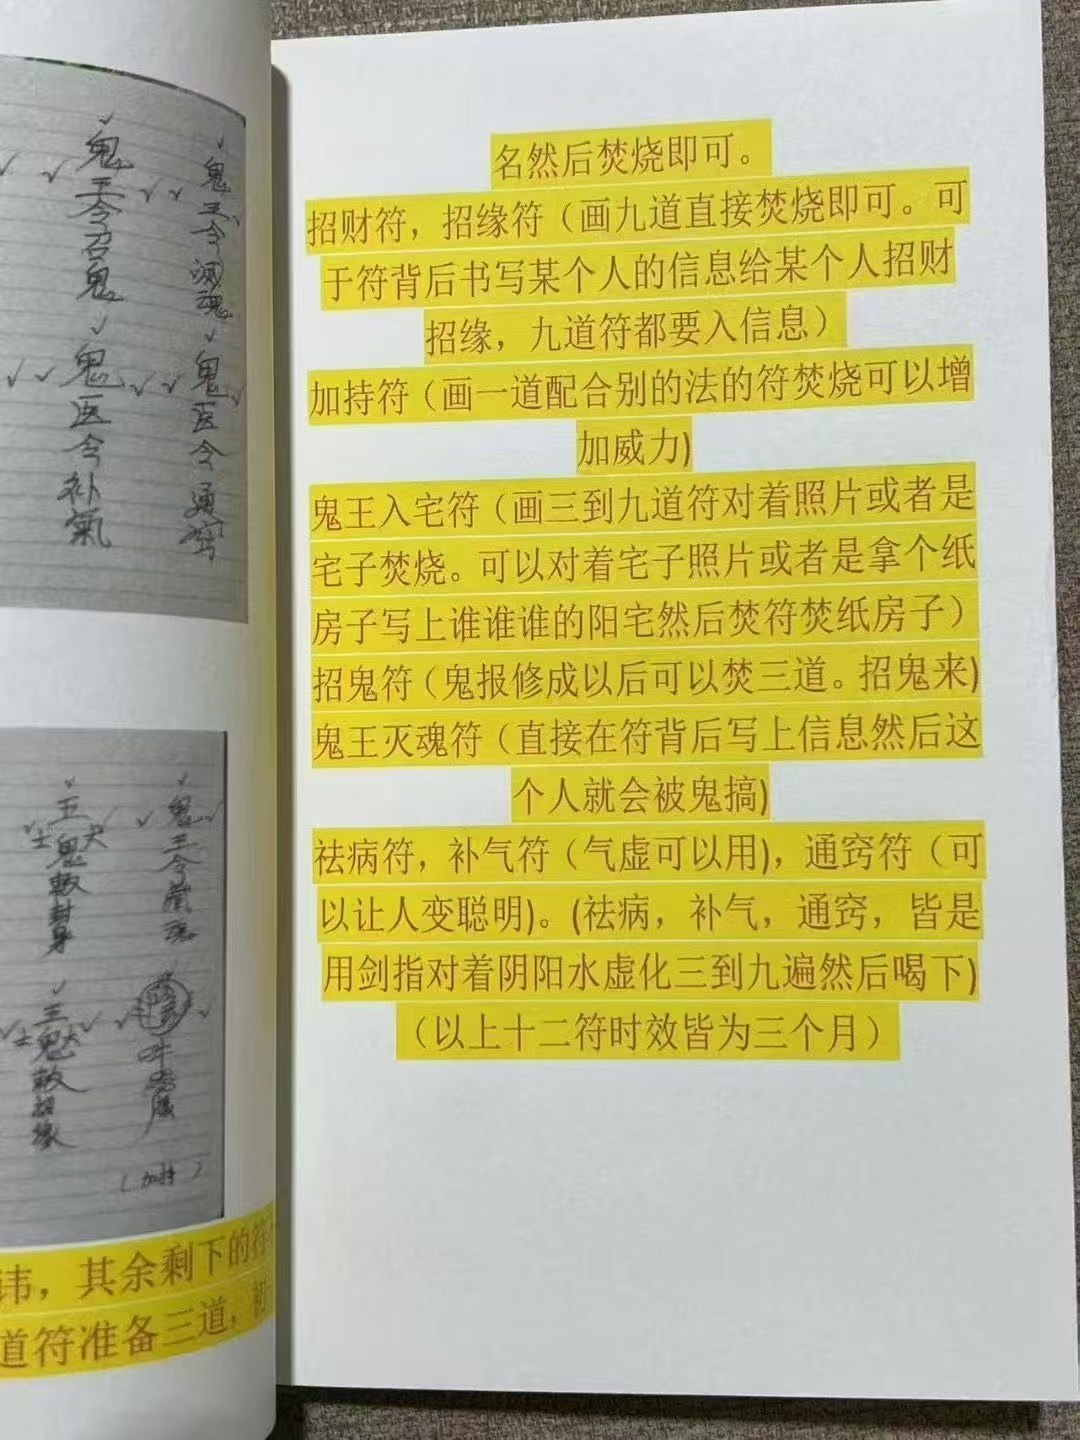 鬼王令召鬼
鬼王令滅魂
鬼医令补氣
鬼医令通窍
五鬼敕封身
鬼王令
三鬼敕招缘
(加持)
讳，其余剩下的符
道符准备三道，初
名然后焚烧即可。
招财符，招缘符（画九道直接焚烧即可。可
于符背后书写某个人的信息给某个人招财
招缘，九道符都要入信息）
加持符（画一道配合别的法的符焚烧可以增
加威力)
鬼王入宅符（画三到九道符对着照片或者是
宅子焚烧。可以对着宅子照片或者是拿个纸
房子写上谁谁谁的阳宅然后焚符焚纸房子）
招鬼符（鬼报修成以后可以焚三道。招鬼来)
鬼王灭魂符（直接在符背后写上信息然后这
个人就会被鬼搞)
祛病符，补气符（气虚可以用)，通窍符（可
以让人变聪明)。(祛病，补气，通窍，皆是
用剑指对着阴阳水虚化三到九遍然后喝下)
（以上十二符时效皆为三个月）